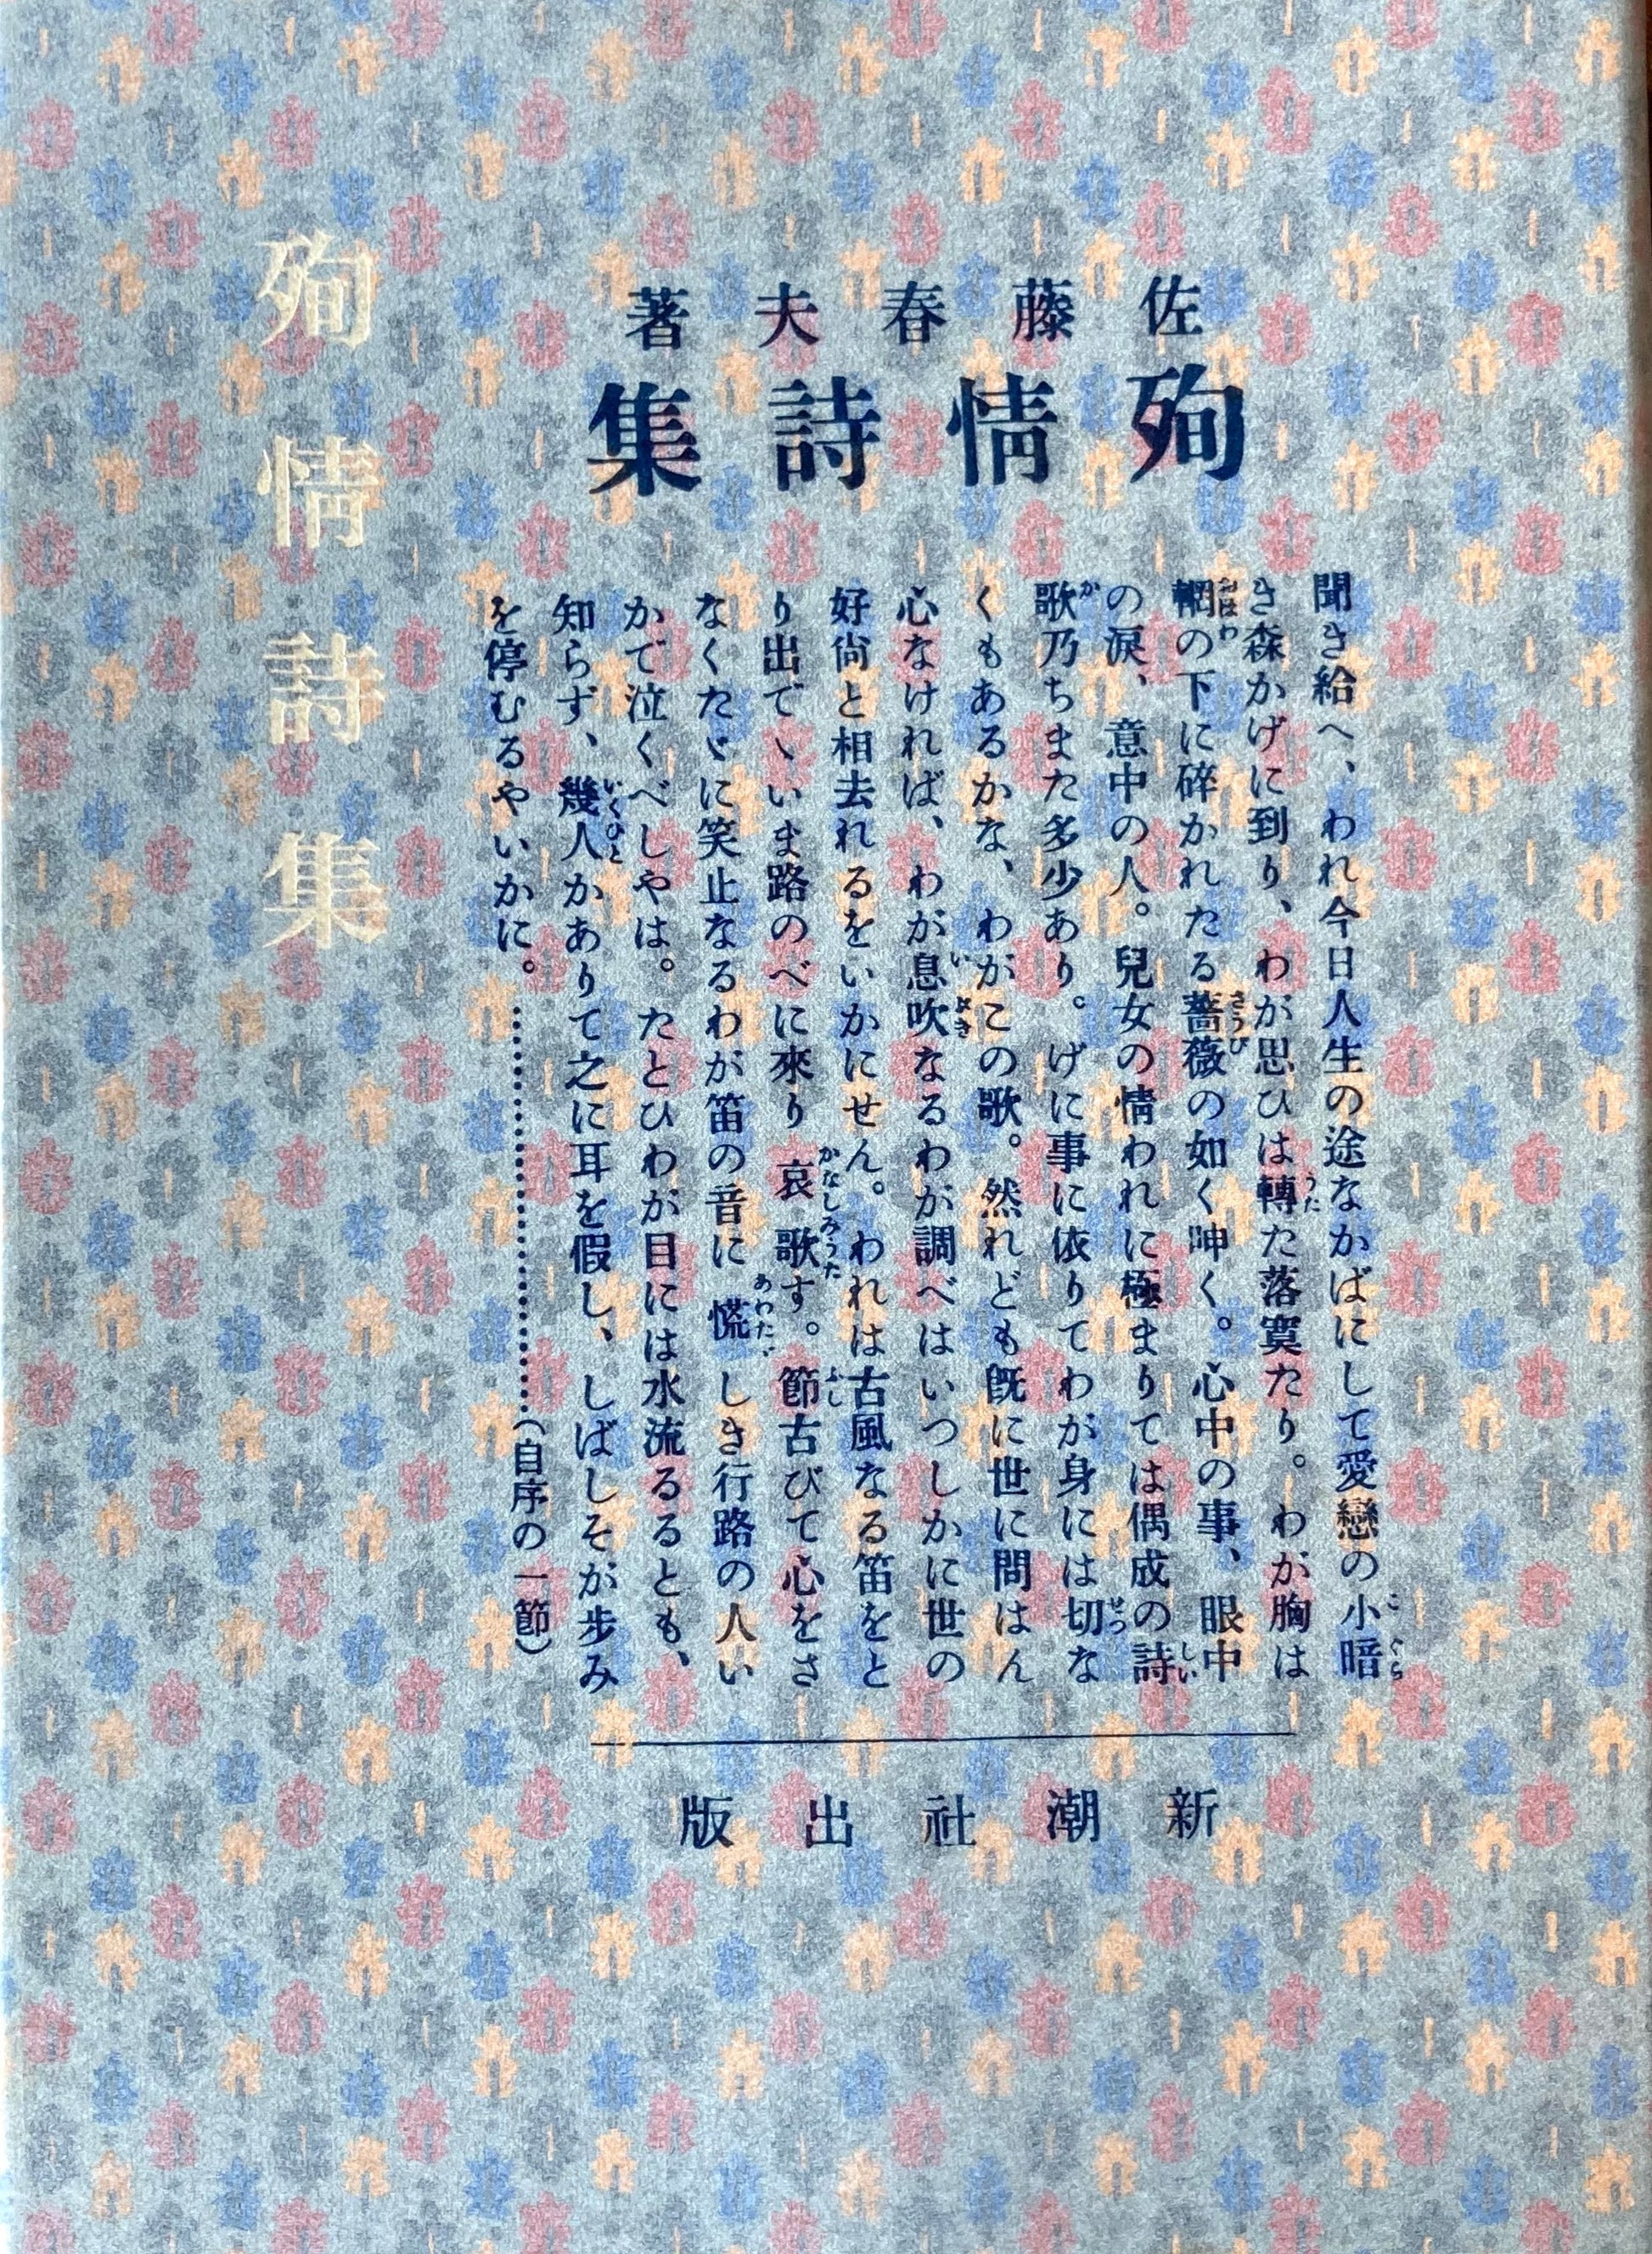 佐藤春夫著
殉情詩集
聞き給へ、われ今日人生の途なかばにして愛戀の小暗
き森かげに到り、わが思ひは轉た落寞たり。わが胸は
輞の下に碎かれたる薔薇の如く呻く。心中の事、眼中
の淚、意中の人。兒女の情われに極まりては偶成の詩
歌乃ちまた多少あり。げに事に依りてわが身には切な
くもあるかな、わがこの歌。然れども既に世に問はん
心なければ、わが息吹なるわが調べはいつしかに世の
好尙と相去れるをいかにせん。われは古風なる笛をと
り出でゝいま路のべに來り哀歌す。節古びて心をさ
なくたゞに笑止なるわが笛の音に慌しき行路の人い
かで泣くべしやは。たとひわが目には水流るるとも、
知らず、幾人かありて之に耳を假し、しばしそが步み
を停むるやいかに。……………………(自序の一節)
新潮社出版
殉情詩集